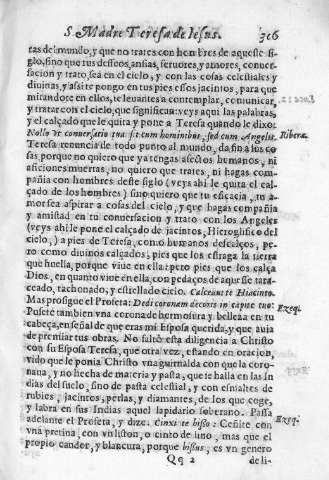 S. Madre Teresa de Iesus. 316
tas del mundo, y que no trates con hombres de aqueste si-
glo, sino que tus desseos, ansias, feruores, y amores, conuer-
sacion y trato, sea en el cielo, y con las cosas celestiales y
diuinas, y assi te pongo en tus pies essos jacintos, para que
mirandote en ellos, te leuantes a contemplar, comunicar,
y tratar con el cielo, que significa: veys aqui las palabras,
y el calçado que le quita y pone a Teresa quando le dixo:
Nollo vt conuersatio tua sit cum hominibus, sed cum Angelis. Ribera.
Teresa renuncia de todo punto al mundo, da fin a los co
sas porque no quiero que ya tengas afectos humanos, ni
aficiones muertas, no quiero que trates, ni hagas com-
pañia con hombres deste siglo (veys ahi le quita el cal-
çado de los hombres) sino quiero que tu eficacia, tu a-
mor sea aspirar a cosas del cielo, y que hagas compañia
y amistad en tu conuersacion y trato con los Angeles
(veys ahi le pone el calçado de jacintos, Hieroglifico del
cielo,) a pies de Teresa, como humanos descalços, pe-
ro como diuinos calçados; pies que los esfraga la tierra
que huella, porque viue en ella: pero pies que los calça
Dios, en quanto viue en ella, con pedaços de aquesse tara-
ceado, tachonado, y estrellado cielo. Calceaui te Hiacinto.
Mas prosigue el Profeta: Dedi coronam decoris in capite tuo: Ezeq.
Pusete tambien vna corona de hermosura y belleza en tu
cabeça, en señal de que eras mi Esposa querida, y que auia
de premiar tus obras. No faltò esta diligencia a Christo
con su Esposa Teresa, que otra vez, estando en oracion,
vido que le ponia Christo vna guirnalda con que la coro-
nana, y no hecha de materia y pasta, que se halla en las In
dias del suelo, sino de pasta celestial, y con esmaltes de
rubies, jacintos, perlas, y diamantes, de los que coge,
y labra en sus Indias aquel lapidario soberano. Passa
adelante el Profeta, y dize. Cinxi te bisso: Ceñite con Ezeq.
vna pretina, con vn liston, o cinto de lino, mas que el
propio candor, y blancura, porque bissus, es vn genero
Qq 2 de li-